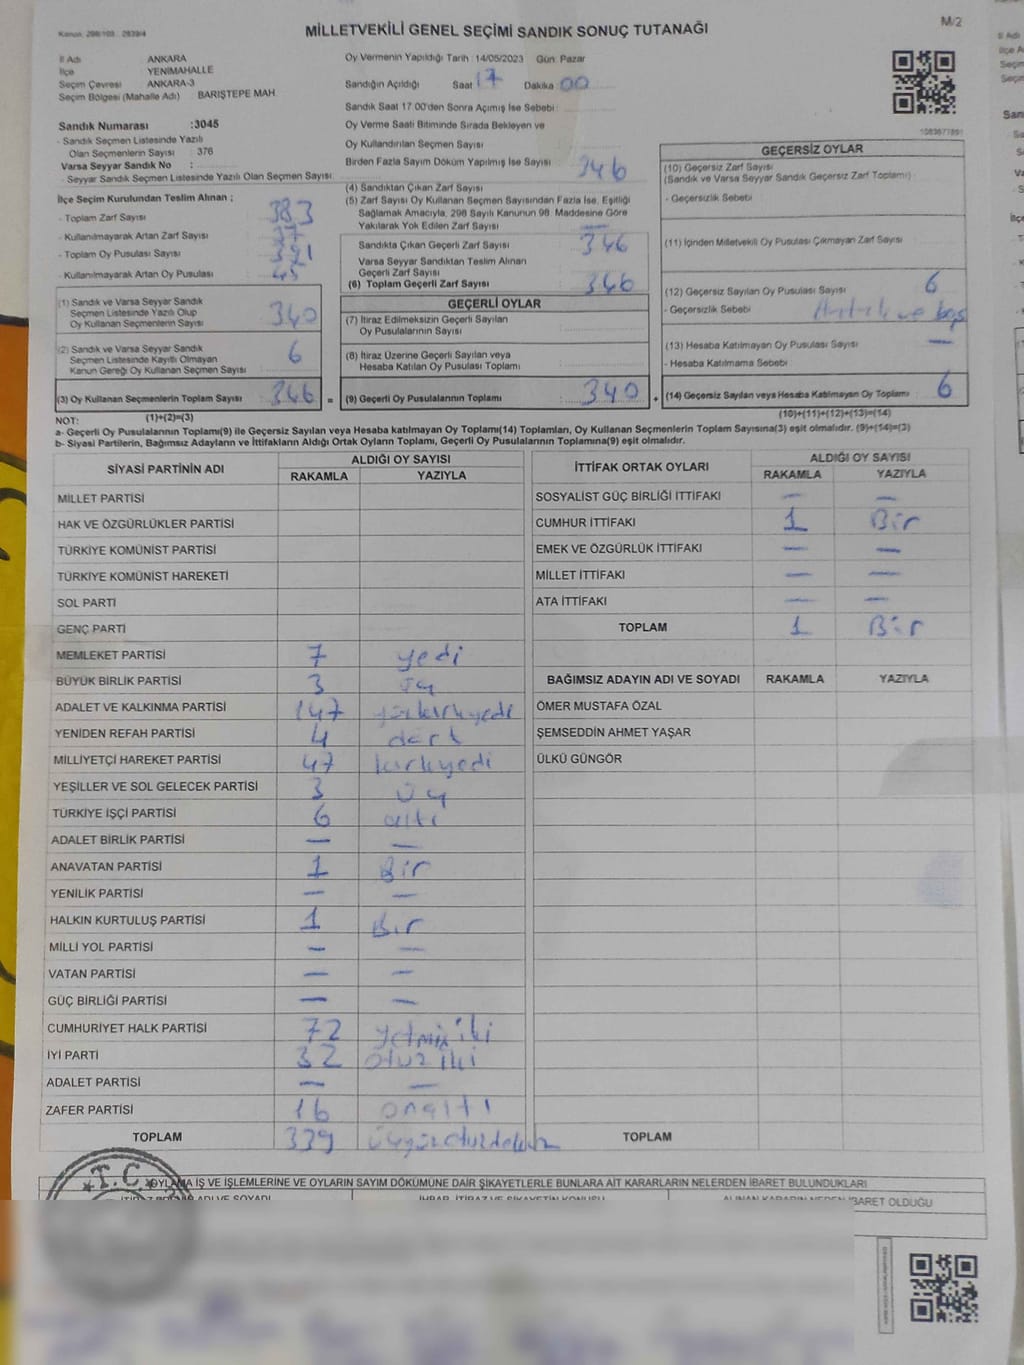 Kanun: 298/109 : 2839/4
MİLLETVEKİLİ GENEL SEÇİMİ SANDIK SONUÇ TUTANAĞI
M/2
İl Adı ANKARA
İlçe YENİMAHALLE
Seçim Çevresi ANKARA-3
Seçim Bölgesi (Mahalle Adı) : BARIŞTEPE MAH.
Sandık Numarası :3045
- Sandık Seçmen Listesinde Yazılı
Olan Seçmenlerin Sayısı : 376
Varsa Seyyar Sandık No :
- Seyyar Sandık Seçmen Listesinde Yazılı Olan Seçmen Sayısı
İlçe Seçim Kurulundan Teslim Alınan ;
- Toplam Zarf Sayısı 383
- Kullanılmayarak Artan Zarf Sayısı 37
- Toplam Oy Pusulası Sayısı 391
- Kullanılmayarak Artan Oy Pusulası 45
(1) Sandık ve Varsa Seyyar Sandık
Seçmen Listesinde Yazılı Olup
Oy Kullanan Seçmenlerin Sayısı 340
(2) Sandık ve Varsa Seyyar Sandık
Seçmen Listesinde Kayıtlı Olmayan
Kanun Gereği Oy Kullanan Seçmen Sayısı 6
(3) Oy Kullanan Seçmenlerin Toplam Sayısı 346 =
Oy Vermenin Yapıldığı Tarih : 14/05/2023 Gün: Pazar
Sandığın Açıldığı Saat 17 Dakika 00
Sandık Saat 17.00'den Sonra Açımış İse Sebebi :
Oy Verme Saati Bitiminde Sırada Bekleyen ve
Oy Kullandırılan Seçmen Sayısı
Birden Fazla Sayım Döküm Yapılmış İse Sayısı
(4) Sandıktan Çıkan Zarf Sayısı 346
(5) Zarf Sayısı Oy Kullanan Seçmen Sayısından Fazla İse, Eşitliği
Sağlamak Amacıyla, 298 Sayılı Kanunun 98. Maddesine Göre
Yakılarak Yok Edilen Zarf Sayısı —
Sandıkta Çıkan Geçerli Zarf Sayısı 346
Varsa Seyyar Sandıktan Teslim Alınan
Geçerli Zarf Sayısı
(6) Toplam Geçerli Zarf Sayısı 346
GEÇERLİ OYLAR
(7) İtiraz Edilmeksizin Geçerli Sayılan
Oy Pusulalarının Sayısı
(8) İtiraz Üzerine Geçerli Sayılan veya
Hesaba Katılan Oy Pusulası Toplamı
(9) Geçerli Oy Pusulalarının Toplamı : 340 +
1083677891
GEÇERSİZ OYLAR
(10) Geçersiz Zarf Sayısı
(Sandık ve Varsa Seyyar Sandık Geçersiz Zarf Toplamı) :
- Geçersizlik Sebebi
(11) İçinden Milletvekili Oy Pusulası Çıkmayan Zarf Sayısı
(12) Geçersiz Sayılan Oy Pusulası Sayısı 6
- Geçersizlik Sebebi ve boş
(13) Hesaba Katılmayan Oy Pusulası Sayısı —
- Hesaba Katılmama Sebebi
(14) Geçersiz Sayılan veya Hesaba Katılmayan Oy Toplamı : 6
NOT: (1)+(2)=(3) (10)+(11)+(12)+(13)=(14)
a- Geçerli Oy Pusulalarının Toplamı(9) ile Geçersiz Sayılan veya Hesaba katılmayan Oy Toplamı(14) Toplamları, Oy Kullanan Seçmenlerin Toplam Sayısına(3) eşit olmalıdır. (9)+(14)=(3)
b- Siyasi Partilerin, Bağımsız Adayların ve İttifakların Aldığı Ortak Oyların Toplamı, Geçerli Oy Pusulalarının Toplamına(9) eşit olmalıdır.
SİYASİ PARTİNİN ADI ALDIĞI OY SAYISI
RAKAMLA YAZIYLA
MİLLET PARTİSİ
HAK VE ÖZGÜRLÜKLER PARTİSİ
TÜRKİYE KOMÜNİST PARTİSİ
TÜRKİYE KOMÜNİST HAREKETİ
SOL PARTİ
GENÇ PARTİ
MEMLEKET PARTİSİ 7 yedi
BÜYÜK BİRLİK PARTİSİ 3 üç
ADALET VE KALKINMA PARTİSİ 147 yüzkırkyedi
YENİDEN REFAH PARTİSİ 4 dört
MİLLİYETÇİ HAREKET PARTİSİ 47 kırkyedi
YEŞİLLER VE SOL GELECEK PARTİSİ 3 üç
TÜRKİYE İŞÇİ PARTİSİ 6 altı
ADALET BİRLİK PARTİSİ — —
ANAVATAN PARTİSİ 1 Bir
YENİLİK PARTİSİ — —
HALKIN KURTULUŞ PARTİSİ 1 Bir
MİLLİ YOL PARTİSİ — —
VATAN PARTİSİ — —
GÜÇ BİRLİĞİ PARTİSİ — —
CUMHURİYET HALK PARTİSİ 72 yetmişiki
İYİ PARTİ 32 otuziki
ADALET PARTİSİ — —
ZAFER PARTİSİ 16 onaltı
TOPLAM 339 üçyüzotuzdokuz
İTTİFAK ORTAK OYLARI ALDIĞI OY SAYISI
RAKAMLA YAZIYLA
SOSYALİST GÜÇ BİRLİĞİ İTTİFAKI — —
CUMHUR İTTİFAKI 1 Bir
EMEK VE ÖZGÜRLÜK İTTİFAKI — —
MİLLET İTTİFAKI — —
ATA İTTİFAKI — —
TOPLAM 1 Bir
BAĞIMSIZ ADAYIN ADI VE SOYADI RAKAMLA YAZIYLA
ÖMER MUSTAFA ÖZAL
ŞEMSEDDİN AHMET YAŞAR
ÜLKÜ GÜNGÖR
TOPLAM
T.C.
OYLAMA İŞ VE İŞLEMLERİNE VE OYLARIN SAYIM DÖKÜMÜNE DAİR ŞİKAYETLERLE BUNLARA AİT KARARLARIN NELERDEN İBARET BULUNDUKLARI
ADI VE SOYADI İHBAR, İTİRAZ VE ŞİKAYETİN KONUSU ALINAN KARARIN NEDEN İBARET OLDUĞU